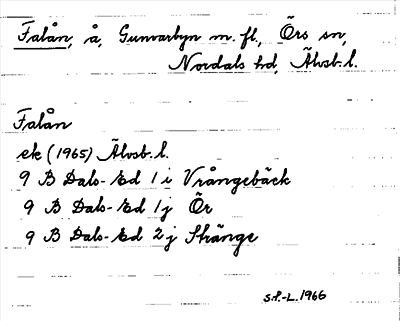 Falån, å, Gunvarbyn m. fl., Örs sn,
Nordals hd, Älvsb. l.
Falån
ek (1965) Älvsb. l.
9 B Dals-Ed 1 i Vrångebäck
9 B Dals-Ed 1 j Ör
9 B Dals-Ed 2 j Stränge
S.P.-L. 1966